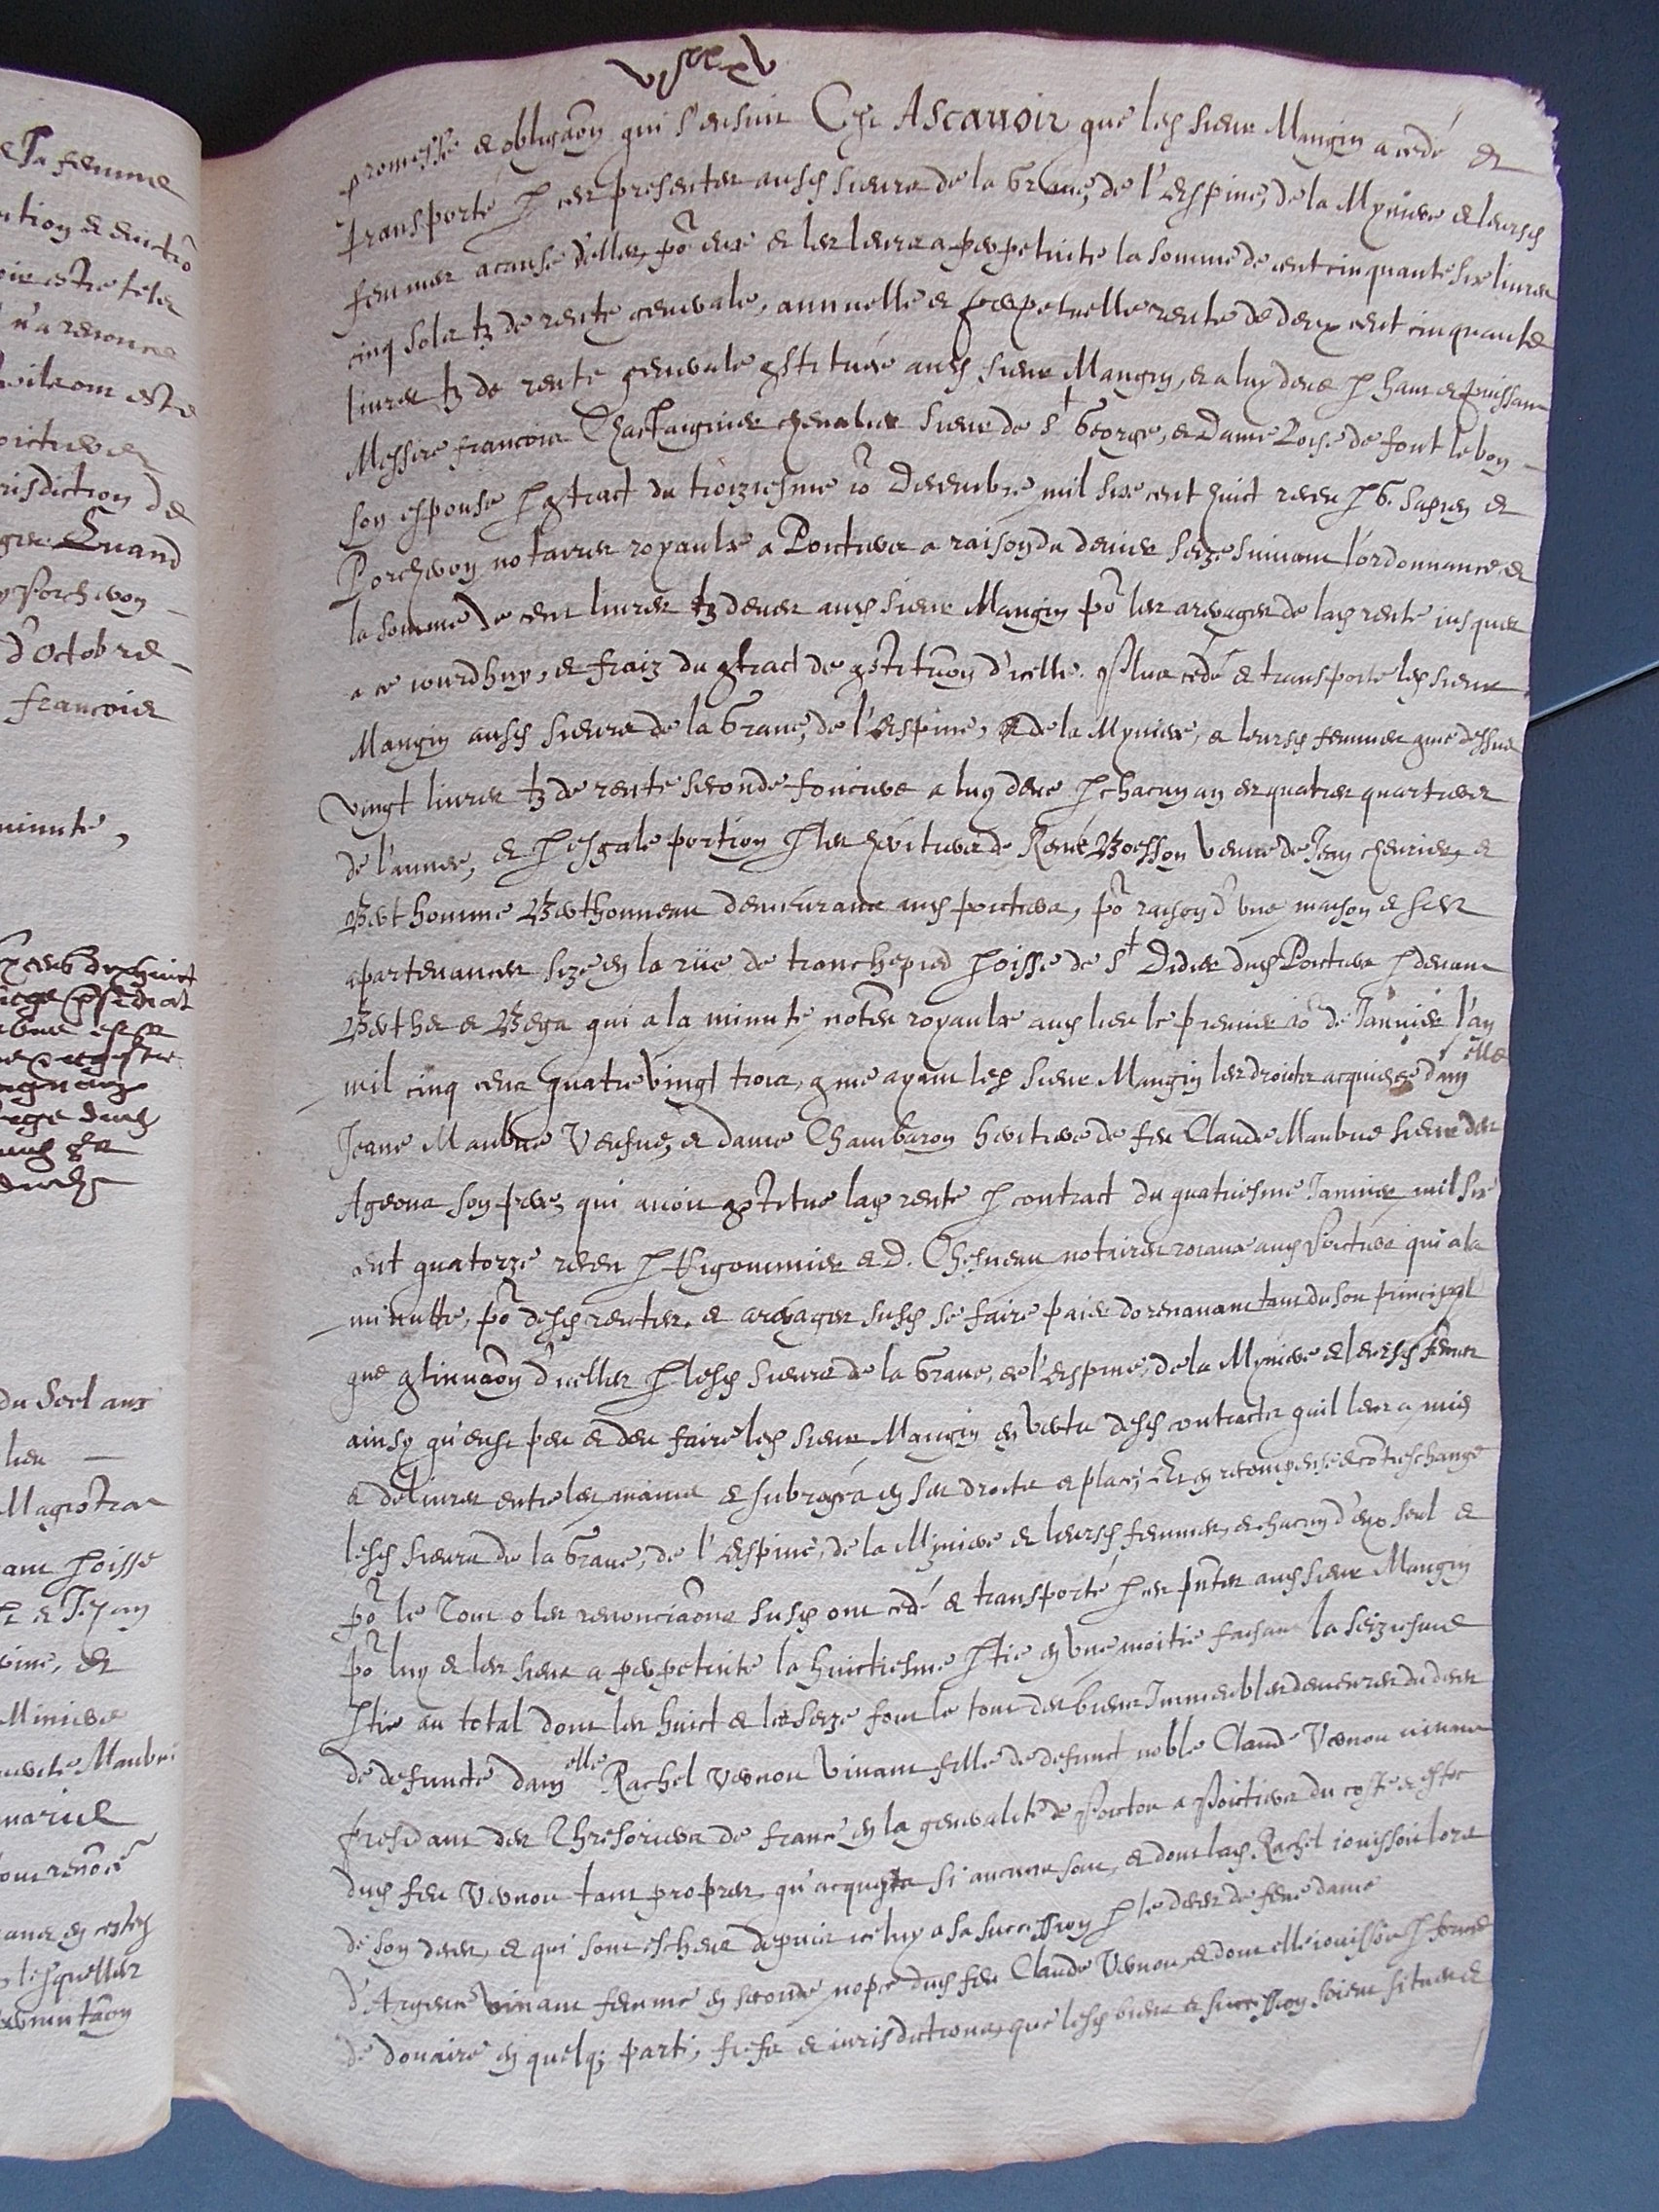 promesse & obligaon qui s'ensuit C'est Ascavoir que led sieur Mangin a cedé &
transporté p ces presentes ausd sieurs de la Grave, de l'Espine, de la Myniere & leursd
femmes a cause d'elles, po eux & les leurs a perpetuite la somme de cent cinquante six livres
cinq solz tz de rente generale, annuelle & perpetuelle rente de deux cent cinquante
livres tz de rente generale gstituée aud sieur Mangin, & a luy deue p haut & puissant
Messire francois Chastaignier chevalier sieur de St George, & Dame Loise de font lebon
son espouse p gtract du troiziesme io Decembre mil six cent huict receu p G. Sapien &
Porcheron notaires royaulx a Poictiers a raison du denier seize suivant l'ordonnance, &
la somme de cent livres tz deues aud sieur Mangin po les arerages de lad rente iusques
a ce iourdhuy, & fraiz du gtract de gstituon d'icelle. Plus cedé & transporte led sieur
Mangin ausd sieurs de la Grave, de l'Espine, & de la Myniere, & leursd femmes gme dessus
vingt livres tz de rente seconde fonciere a luy deue p chacun an es quatre quartiers
de l'annee, & p esgale portion p les heritiers de René Boesson veuve de Jean &
Berthomme Berthonneau demeurans aud poictiers, po raison d'une maison & ses
apartenances size en la rüe de tranchepied poisse de St Didier dud Poictiers p devant
Berthe & Bega qui a la minute notres royaulx aud lieu le premier io de Januier l'an
mil cinq cens quatre vingt trois, gme ayant led sieur Mangin les droictz acquis de damelle
Jeane Maubue Veufue, & dame Chambaron heritiere de feu Claude Maubue sieur des
Ageons son pere, qui avoit gstitue lad rente p contract du quatriesme Januier mil six
cent quatorze receu p & D. Chesneau notaires roiaux aud Poictiers qui a la
minutte, po desd rentes, & arerages susd se faire paier dorenavant tant du sou principal
que gtinuaon d'icelles p lesd sieurs de la Grave, de l'Espine, de la Myniere & leursd femmes
ainsy qu'eust peu & deu faire led sieur Mangin en vertu desd contractz quil leur a mis
& delivrez entre les mains & subrogéz en ses droictz & place, Et en recompense & contreschange
lesd sieurs de la Grave, de l'Espine, de la Myniere & leursd femmes, & chacun d'eux seul &
po le Tout o les renonciaons susd ont cedé & transporté p ces pntes aud sieur Mangin
po luy & les siens a perpetuite la huictiesme ptie en une moitie faisant la seiziesme
ptie au total dont les huict & les seze font le tout des biens Immeubles demeurez du deces
de defuncte damelle Rachel Vernou vivant fille de defunct noble Claude Vernou vivant
president des Thresoriers de france en la generalité de Poictou a Poictiers du coste & estoc
dud feu Vernou tant propres, qu'acquestz si aucuns sont, & dont lad Rachel iouissoit lors
de son deces, & qui sont escheus depuis iceluy a sa succession p le deces de feue dame
d'Argens vivant femme en seconde nopce dud feu Claude Vernou, & dont elle iouissoit p forme
de douaire en quelq; parti, fiefs & iurisdictions, que lesd biens & succession soient situez &